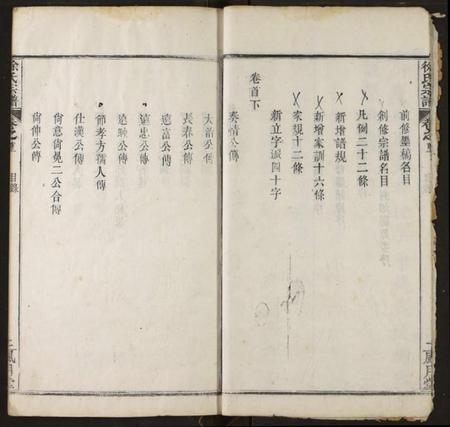 徐氏宗譜
卷之首
前修墨稿名目
創修宗譜名目
凡例二十二條
新增譜規
新增家訓十六條
家規十二條
新立字派四十字
卷首下
奏情公傳
太治公傳
長春公傳
遠富公傳
遠忠公傳
遠映公傳
節孝方孺人傳
仕漢公傳
尙意尙冕二公合傳
尙伸公傳
徐氏宗譜
卷之首
目錄
鳳月堂